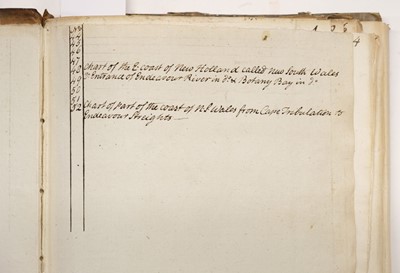 46
47
48 Chart of the E. coast of New Holland called New South Wales
49 & Entrance of Endeavour River in Do. & Botany Bay in Do.
50
51
52 Chart of part of the coast of N S Wales from Cape Tribulation to
Endeavour Streights